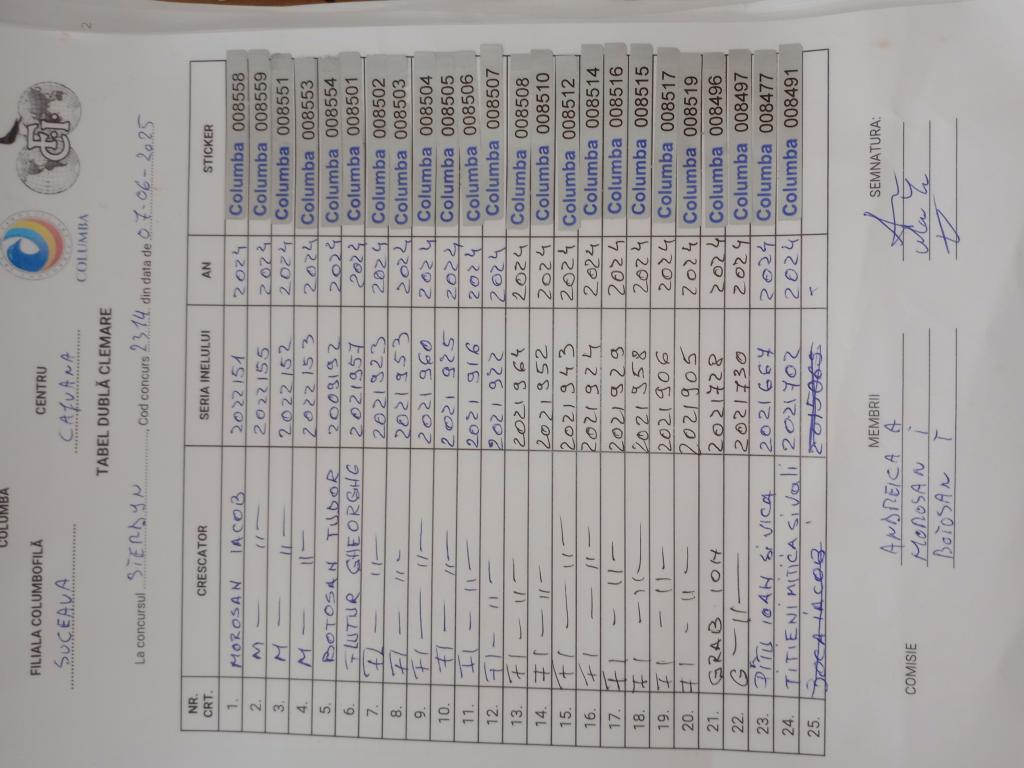 COLUMBA
2
COLUMBA
FILIALA COLUMBOFILĂ
CENTRU
SUCEAVA
CAJVANA
TABEL DUBLĂ CLEMARE
La concursul SIERDYN, Cod concurs 2314 din data de 07-06-2025
NR. CRT. CRESCATOR SERIA INELULUI AN STICKER
1. MOROSAN IACOB 2022151 2024 Columba 008558
2. M — 11 — 2022155 2024 Columba 008559
3. M — 11 — 2022152 2024 Columba 008551
4. M — 11 — 2022153 2024 Columba 008553
5. BOTOSAN TUDOR 2009192 2024 Columba 008554
6. FLUTUR GHEORGHE 2021957 2024 Columba 008501
7. Fl — 11 — 2021923 2024 Columba 008502
8. Fl — 11 — 2021953 2024 Columba 008503
9. Fl — 11 — 2021960 2024 Columba 008504
10. Fl — 11 — 2021925 2024 Columba 008505
11. Fl — 11 — 2021916 2024 Columba 008506
12. Fl — 11 — 2021922 2024 Columba 008507
13. Fl — 11 — 2021964 2024 Columba 008508
14. Fl — 11 — 2021952 2024 Columba 008510
15. Fl — 11 — 2021943 2024 Columba 008512
16. Fl — 11 — 2021924 2024 Columba 008514
17. Fl — 11 — 2021929 2024 Columba 008516
18. Fl — 11 — 2021958 2024 Columba 008515
19. Fl — 11 — 2021906 2024 Columba 008517
20. Fl — 11 — 2021905 2024 Columba 008519
21. GRAB ION 2021728 2024 Columba 008496
22. G — 11 — 2021730 2024 Columba 008497
23. IOAN SI VICA 2021667 2024 Columba 008477
24. TITIENI MITICA SI VALI 2021702 2024 Columba 008491
25. IACOB
COMISIE
MEMBRII
SEMNATURA:
ANDREICA A
MOROSAN I
BOTOSAN T